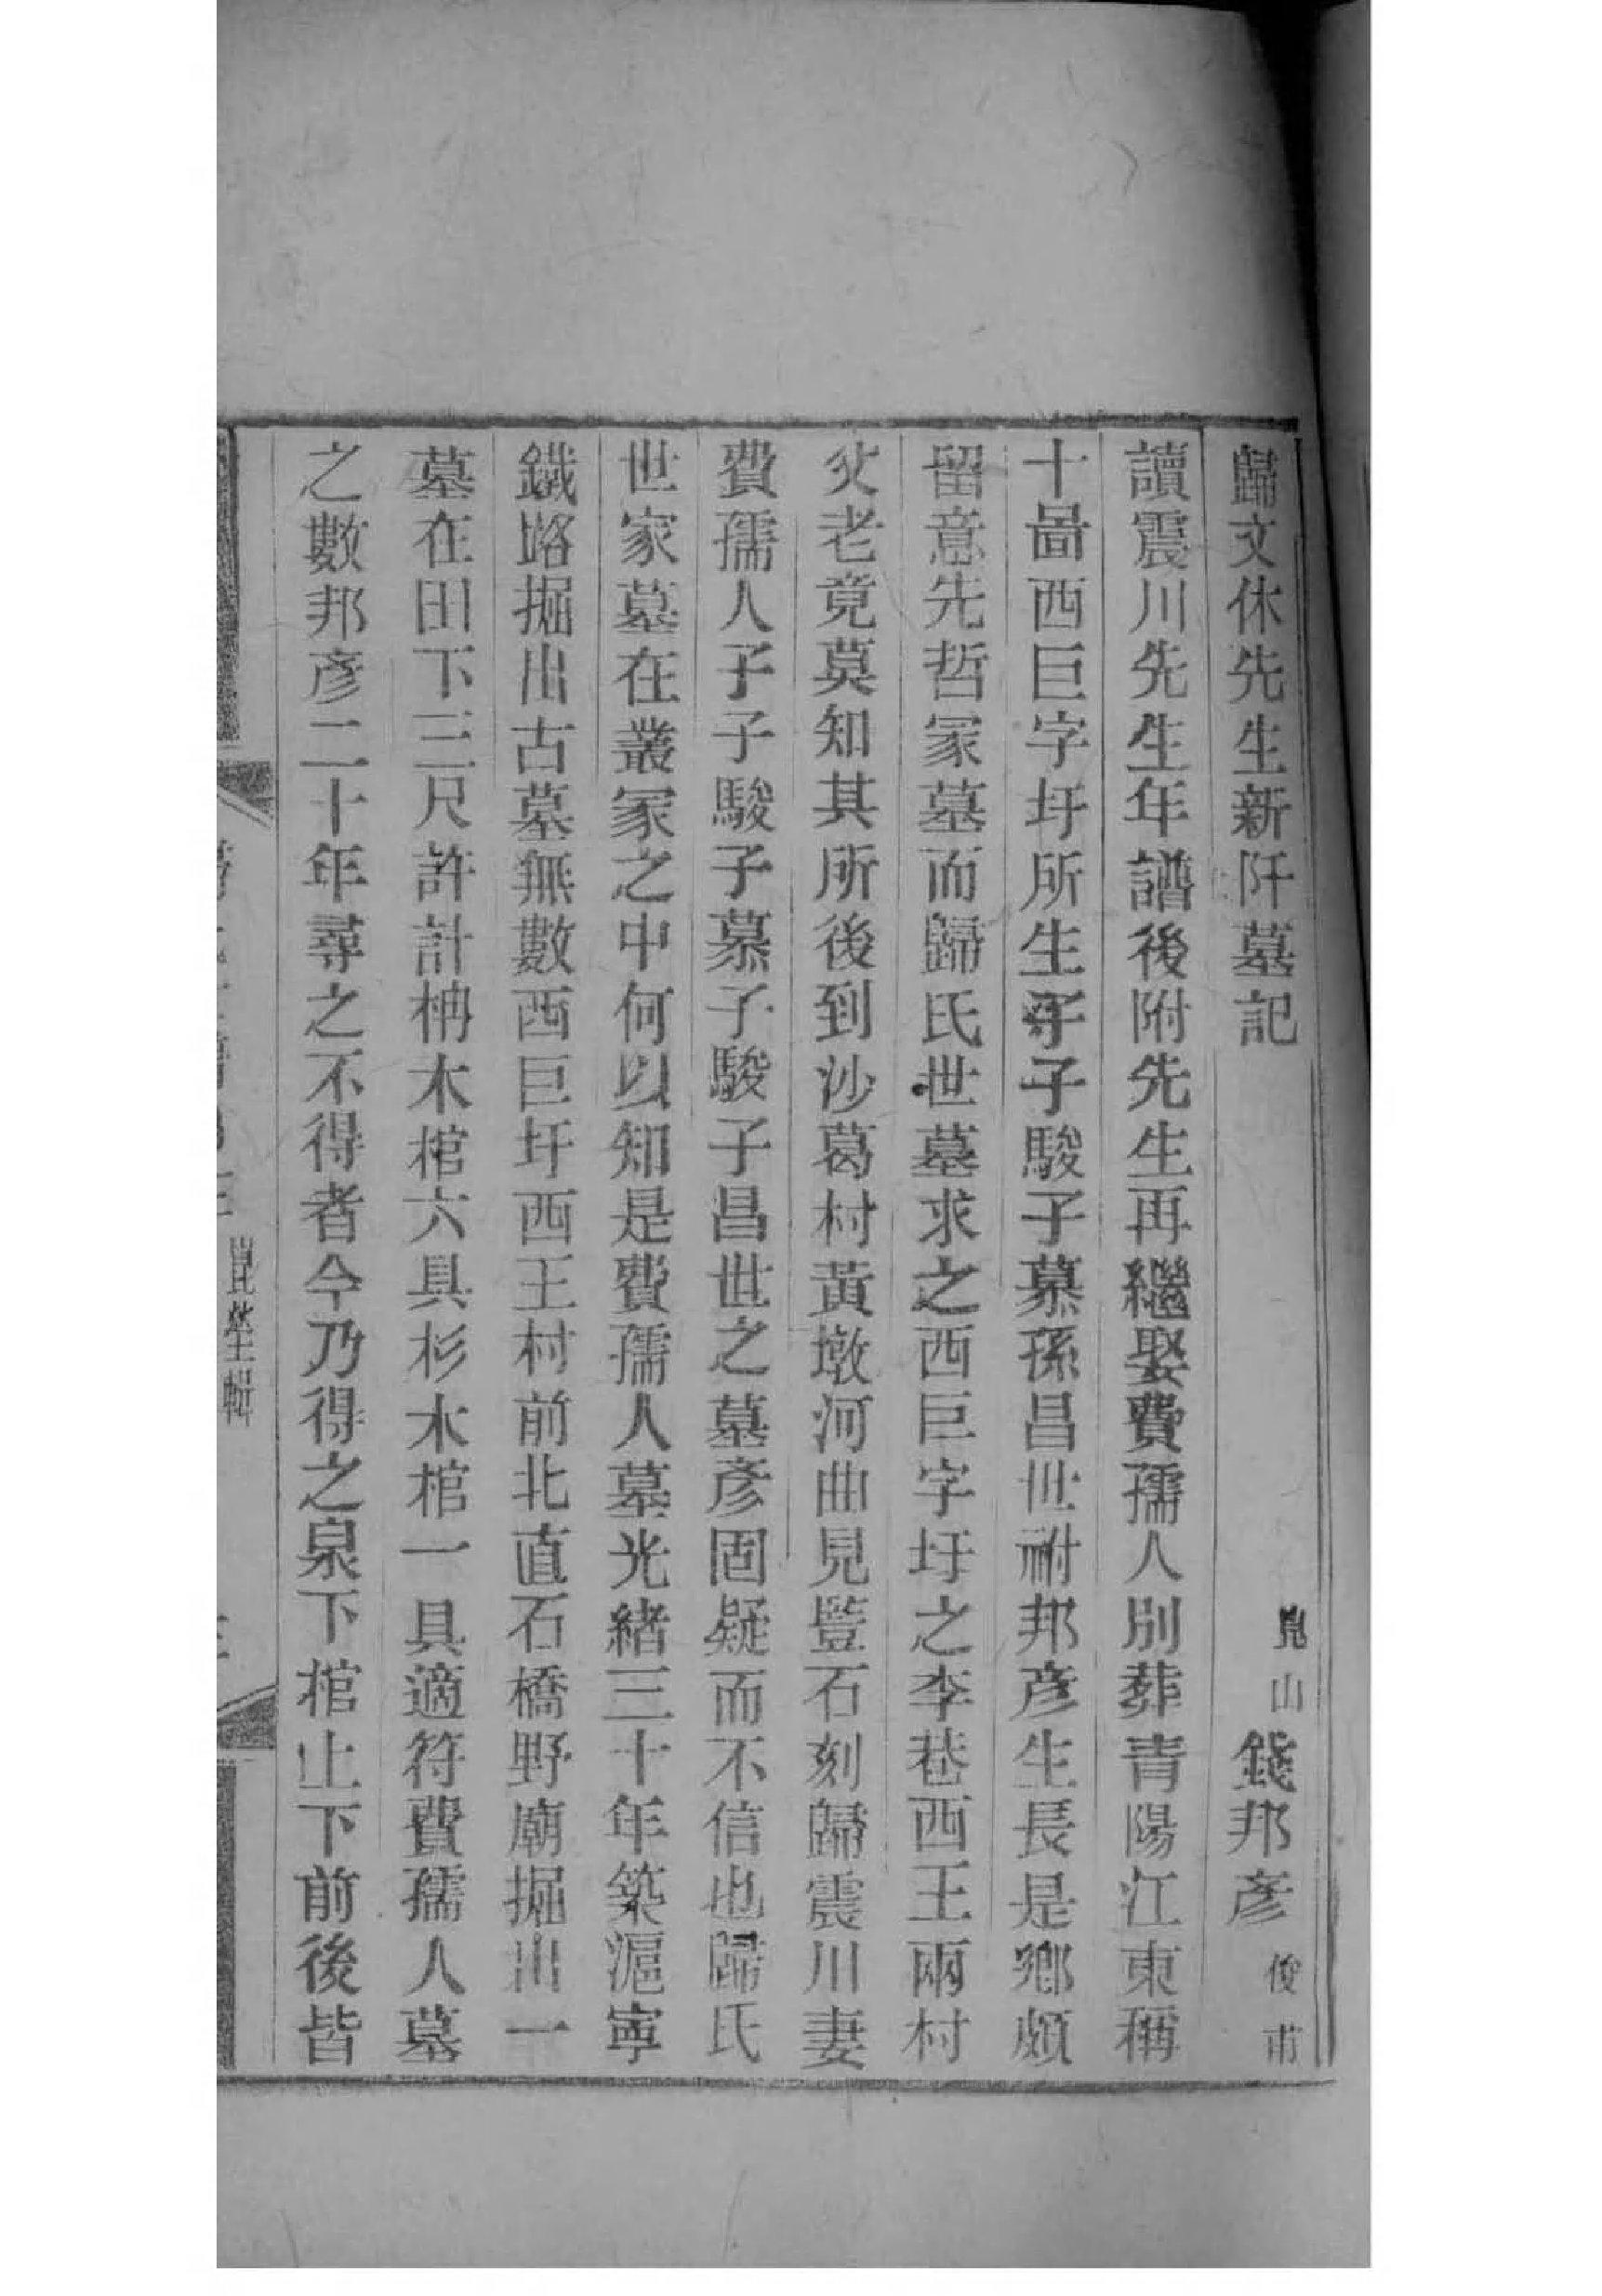 歸文休先生新阡墓記
崑山錢邦彥俊甫
讀震川先生年譜後附先生再繼娶費孺人別葬青陽江東稱
十啚西巨字圩所生子子駿子慕孫昌世祔邦彥生長是鄉頗
留意先哲冢墓而歸氏世墓求之西巨字圩之李巷西王兩村
父老竟莫知其所後到沙葛村黃墩河曲見豎石刻歸震川妻
費孺人子子駿子慕子駿子昌世之墓彥固疑而不信也歸氏
世家墓在叢冢之中何以知是費孺人墓光緒三十年築滬寧
鐵路掘出古墓無數西巨圩西王村前北直石橋野廟掘出一
墓在田下三尺許計柟木棺六具杉木棺一具適符費孺人墓
之數邦彥二十年尋之不得者今乃得之泉下棺止下前後皆